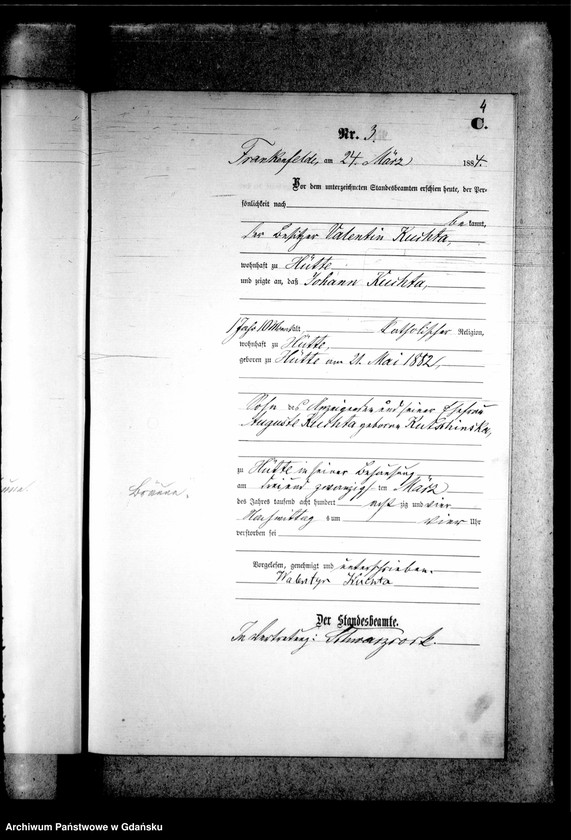 4
C.
Nr. 3.
Frankenfelde, am 24. März 1884.
Vor dem unterzeichneten Standesbeamten erschien heute, der Per-
sönlichkeit nach
be kannt,
der Besitzer Valentin Kuchta,
wohnhaft zu Hütte
und zeigte an, daß Johann Kuchta,
1 Jahr 10 Monat alt, katholischer Religion,
wohnhaft zu Hütte,
geboren zu Hütte am 21. Mai 1882,
Sohn des Anzeigenden und seiner Ehefrau
Auguste Kuchta geborene
zu Hütte in seiner Behausung
am drei und zwanzigsten März
des Jahres tausend acht hundert acht zig und vier
Nachmittag s um vier Uhr
verstorben sei
Vorgelesen, genehmigt und unterschrieben.
Walentyn Kuchta
Der Standesbeamte.
In Vertretung:
Archiwum Państwowe w Gdańsku